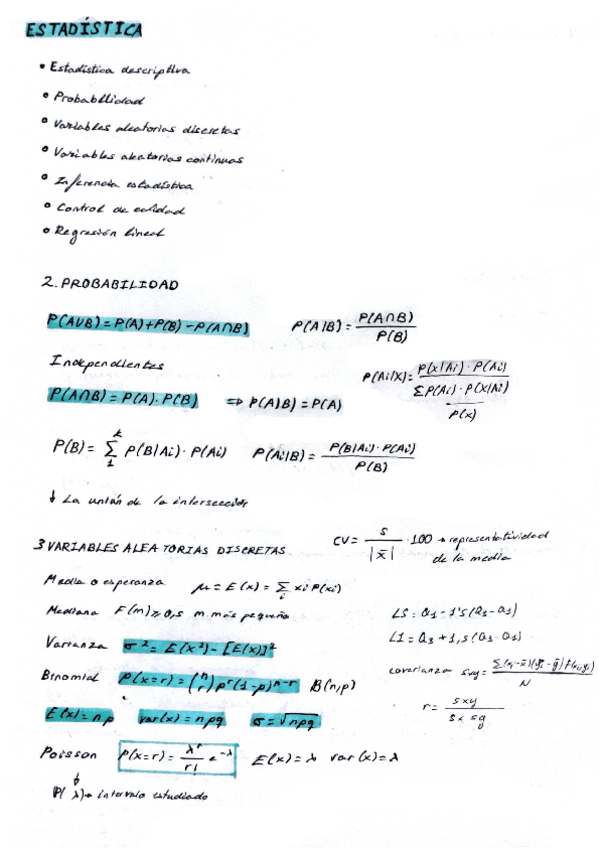 ESTADÍSTICA
• Estadística descriptiva
• Probabilidad
• Variables aleatorias discretas
• Variables aleatorias continuas
• Inferencia estadística
• Control de calidad
• Regresión lineal
2. PROBABILIDAD
P(A∪B) = P(A)+P(B) - P(A∩B)
P(A|B) = P(A∩B) / P(B)
Independientes
P(A∩B) = P(A) . P(B) ⇒ P(A|B) = P(A)
P(Ai|X) = P(X|Ai) · P(Ai) / ΣP(Ai) · P(X|Ai)
P(x)
P(B) = Σ₁ᵏ P(B|Ai) · P(Ai)
P(Ai|B) = P(B|Ai) · P(Ai) / P(B)
↓ La unión de la intersección
3 VARIABLES ALEATORIAS DISCRETAS
CV = s / |x̄| · 100 → representatividad
de la media
Media o esperanza μ = E(x) = Σᵢ xi P(xi)
Mediana F(m) ≥ 0,5 m más pequeño
LS = Q1 - 1'5(Q3 - Q1)
LI = Q3 + 1,5(Q3 - Q1)
Varianza σ² = E(x²) - [E(x)]²
covarianza sxy = Σ(xi-x̄)(yj-ȳ)f(xi,yj) / N
Binomial P(x=r) = (n r) pʳ (1-p)ⁿ⁻ʳ B(n,p)
r = sxy / sx sy
E(x) = np var(x) = npq σ = √npq
Poisson P(x=r) = λʳ / r! e⁻λ E(x) = λ var(x) = λ
↓
P(λ) → intervalo estudiado